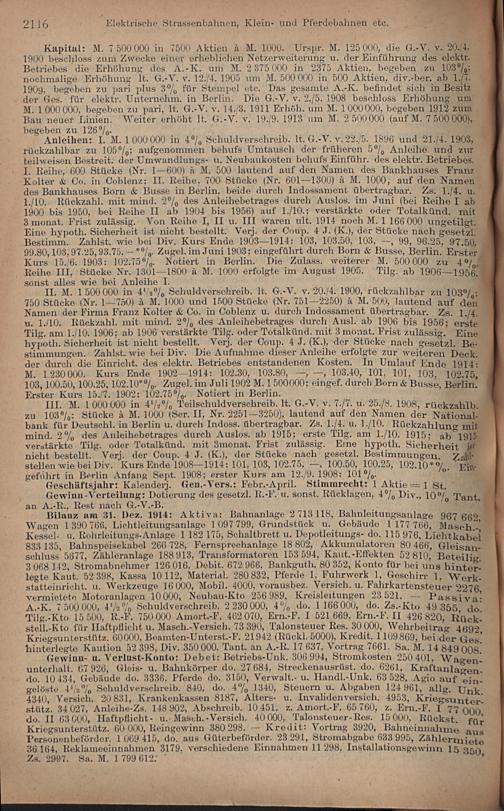 2116 Elektrische Strassenbahnen, Klein- und Pferdebahnen etc.
Kapital: M. 7 500 000 in 7500 Aktien à M. 1000. Urspr. M. 125 000, die G.-V. v. 20./4.
1900 beschloss zum Zwecke einer erheblichen Netzerweiterung u. der Einführung des elektr.
Betriebes die Erhöhung des A.-K. um M. 2 375 000 in 2375 Aktien, begeben zu 103%;
nochmalige Erhöhung lt. G.-V. v. 12./4. 1905 um M. 500 000 in 500 Aktien, div.-ber. ab 1./7.
1909, begeben zu pari plus 3% für Stempel etc. Das gesamte A.-K. befindet sich in Besitz
der Ges. für elektr. Unternehm. in Berlin. Die G.-V. v. 2./5. 1908 beschloss Erhöhung um
M. 1 000 000, begeben zu pari, lt. G.-V. v. 14./3. 1911 Erhöh. um M. 1 000 000, begeben 1912 zum
Bau neuer Linien. Weiter erhöht lt. G.-V. v. 19./9. 1913 um M. 2 500 000 (auf M. 7 500 000),
begeben zu 126%.
Anleihen: I. M. 1 000 000 in 4% Schuldverschreib. lt. G.-V. v. 22./5. 1896 und 21./4. 1903,
rückzahlbar zu 105%; aufgenommen behufs Umtausch der früheren 5% Anleihe und zur
teilweisen Bestreit. der Umwandlungs- u. Neubaukosten behufs Einführ. des elektr. Betriebes.
I. Reihe, 600 Stücke (Nr. 1—600) à M. 500 lautend auf den Namen des Bankhauses Franz
Kolter & Co. in Coblenz; II. Reihe, 700 Stücke (Nr. 601—1300) à M. 1000, auf den Namen
des Bankhauses Born & Busse in Berlin, beide durch Indossament übertragbar. Zs. 1./4. u.
1./10. Rückzahl. mit mind. 2% des Anleihebetrages durch Auslos. im Juni (bei Reihe I ab
1900 bis 1950, bei Reihe II ab 1904 bis 1956) auf 1./10.; verstärkte oder Totalkünd. mit
3 monat. Frist zulässig. Von Reihe I, II u. III waren ult. 1914 noch M. 1 166 000 ungetilgt.
Eine hypoth. Sicherheit ist nicht bestellt. Verj. der Coup. 4 J. (K.), der Stücke nach gesetzl.
Bestimm. Zahlst. wie bei Div. Kurs Ende 1903—1914: 103, 103.50, 103, —, 99, 96.25, 97.50,
99.80, 103, 97.25, 93.75, —*%. Zugel. im Juni 1903; eingeführt durch Born & Busse, Berlin. Erster
Kurs 10./6. 1903: 102.75%. Notiert in Berlin. Die Zulass. weiterer M. 500 000 zu 4%
Reihe III, Stücke Nr. 1301—1800 à M. 1000 erfolgte im August 1905. Tilg. ab 1906—1956,
sonst alles wie bei Anleihe I.
II. M. 1 500 000 in 4½% Schuldverschreib. lt. G.-V. v. 20./4. 1900, rückzahlbar zu 103%;
750 Stücke (Nr. 1—750) à M. 1000 und 1500 Stücke (Nr. 751—2250) à M. 500, lautend auf den
Namen der Firma Franz Kolter & Co. in Coblenz u. durch Indossament übertragbar. Zs. 1./4.
u. 1./10. Rückzahl. mit mind. 2% des Anleihebetrages durch Ausl. ab 1906 bis 1956; erste
Tilg. am 1./10. 1906; ab 1906 verstärkte Tilg. oder Totalkünd. mit 3 monat. Frist zulässig. Eine
hypoth. Sicherheit ist nicht bestellt. Verj. der Coup. 4 J. (K.), der Stücke nach gesetzl. Be-
stimmungen. Zahlst. wie bei Div. Die Aufnahme dieser Anleihe erfolgte zur weiteren Deck.
der durch die Einricht. des elektr. Betriebes entstandenen Kosten. In Umlauf Ende 1914:
M. 1 230 000. Kurs Ende 1902—1914: 102.30, 103.80, —, —, 103.40, 101, 101, 103, 102.75,
103, 100.50, 100.25, 102.10*%. Zugel. im Juli 1902 M. 1 500 000; eingef. durch Born & Busse, Berlin.
Erster Kurs 15./7. 1902: 102.75%. Notiert in Berlin.
III. M. 1 000 000 in 4½% Teilschuldverschreib. lt. G.-V. v. 7./7. u. 25./8. 1908, rückzahlb.
zu 103%; Stücke à M. 1000 (Ser. II, Nr. 2251—3250), lautend auf den Namen der National-
bank für Deutschl. in Berlin u. durch Indoss. übertragbar. Zs. 1./4. u. 1./10. Rückzahlung mit
mind. 2% des Anleihebetrages durch Auslos. ab 1915; erste Tilg. am 1./10. 1915; ab 1915
verstärkte Tilg. oder Totalkünd. mit 3monat. Frist zulässig. Eine hypoth. Sicherheit ist
nicht bestellt. Verj. der Coup. 4 J. (K.), der Stücke nach gesetzl. Bestimmungen. Zahl-
stellen wie bei Div. Kurs Ende 1908—1914: 101, 103, 102.75, —, 100.50, 100.25, 102.10*%. Ein-
geführt in Berlin Anfang Sept. 1908; erster Kurs am 12./9. 1908: 101%.
Geschäftsjahr: Kalenderj. Gen.-Vers.: Febr.-April. Stimmrecht: 1 Aktie = 1 St.
Gewinn-Verteilung: Dotierung des gesetzl. R.-F. u. sonst. Rücklagen, 4% Div., 10% Tant.
an A.-R., Rest nach G.-V.-B.
Bilanz am 31. Dez. 1914: Aktiva: Bahnanlage 2 713 118, Bahnleitungsanlage 967 662,
Wagen 1 390 766, Lichtleitungsanlage 1 097 799, Grundstück u. Gebäude 1 177 766, Masch.-,
Kessel- u. Rohrleitungs-Anlage 1 182 175, Schaltbrett u. Depotleitungs- do. 115 976, Lichtkabel
833 135, Bahnspeisekabel 266 728, Fernsprechanlage 18 802, Akkumulatoren 80 466, Gleisan-
schluss 5677, Zähleranlage 188 913, Transformatoren 153 594, Kaut.-Effekten 52 810, Beteilig.
3 068 142, Stromabnehmer 126 016, Debit. 672 966, Bankguth. 80 352, Konto für bei uns hinter-
legte Kaut. 52 398, Kassa 10 112, Material. 280 332, Pferde 1, Fuhrwerk 1, Geschirr 1, Werk-
statteinricht. u. Werkzeuge 16 000, Mobil. 4000, vorausbez. Versich. u. Fahrkartensteuer 2276,
vermietete Motoranlagen 10 000, Neubau-Kto 256 989, Kreisleitungen 23 521. — Passiva:
A.-K. 7 500 000, 4½% Schuldverschreib. 2 230 000, 4% do. 1 166 000, do. Zs.-Kto 49 355, do.
Tilg.-Kto 15 500, R.-F. 750 000 Amort.-F. 462 070, Ern.-F. I 521 669, Ern.-F. II 426 820, Rück-
stell.-Kto für Haftpflicht u. Masch.-Versich. 73 390, Talonsteuer Res. 30 000, Wehrbeitrag 4692,
Kriegsunterstütz. 60 000, Beamten-Unterst.-F. 21942 (Rückl. 5000), Kredit. 1 109 869, bei der Ges.
hinterlegte Kaution 52 398, Div. 350 000, Tant. an A.-R. 17 637, Vortrag 7661. Sa. M. 14 849 008.
Gewinn- u. Verlust-Konto: Debet: Betriebs-Unk. 306 994, Stromkosten 250 401, Wagen-
unterhalt. 67 920, Gleis- u. Bahnkörper do. 27 684, Streckenausrüst. do. 6261, Kraftanlagen-
do. 10 434, Gebäude do. 3336, Pferde do. 3150, Verwalt.- u. Handl.-Unk. 63 528, Agio auf ein-
gelöste 4½% Schuldverschreib. 840, do. 4% 1340, Steuern u. Abgaben 124 961, allg. Unk.
4340, Versich. 20 831, Krankenkassen 8187, Alters- u. Invalidenversich. 4953, Kriegsunter-
stütz. 34 027, Anleihe-Zs. 148 902, Abschreib. 10 451, z. Amort.-F. 65 760, z. Ern.-F. I 77 000,
do. II 63 000, Haftpflicht- u. Masch.-Versich. 40 000, Talonsteuer-Res. 15 000, Rückst. für
Kriegsunterstütz. 60 000, Reingewinn 380 298. — Kredit: Vortrag 3920, Bahneinnahme aus
Personenbeförder. 1 069 415, do. aus Güterbeförder. 23 291, Stromabgabe 633 995, Zählermiete
36 164, Reklameeinnahmen 3179, verschiedene Einnahmen 11 298, Installationsgewinn 15 350,
Zs. 2997. Sa. M. 1 799 612.